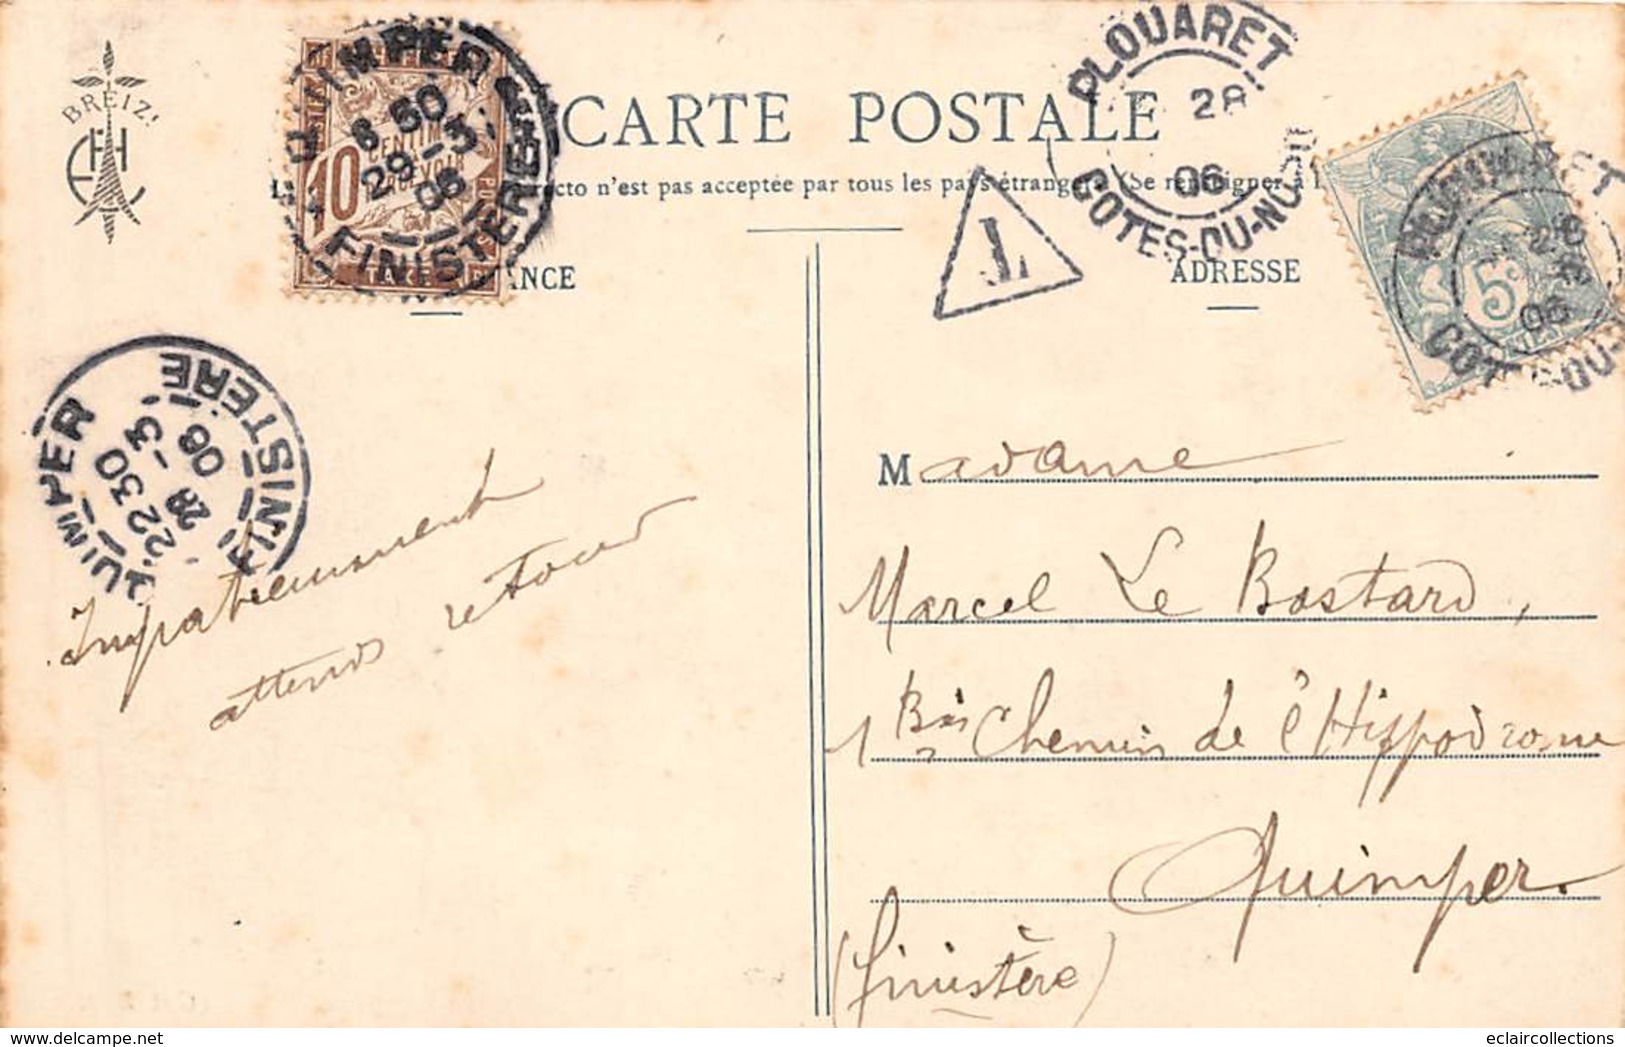 BREIZ!
EH
CARTE POSTALE
recto n'est pas acceptée par tous les pays étrangers (Se renseigner à l
ADRESSE
QUIMPER
8 50
29 -3
06
FINISTERE
10
CENTIMES
TAXE
PLOUARET
28
06
COTES-DU-NORD
T
PLOUARET
06
COTES-DU-
5c
QUIMPER
22 30
28 -3
06
FINISTERE
Impatiemment
attends retour
Madame
Marcel Le Bastard,
1 Bis Chemin de l'Hippodrome
Quimper.
(Finistère)
eclaircollections